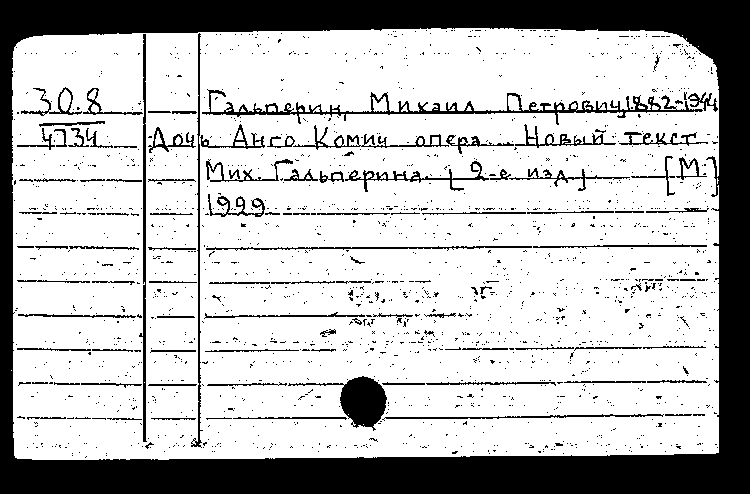 30.8 Гальперин, Михаил Петрович, 1882-1944
4734 Дочь Анго Комич опера. Новый текст
Мих. Гальперина. [2-е изд.] [М.]
1929